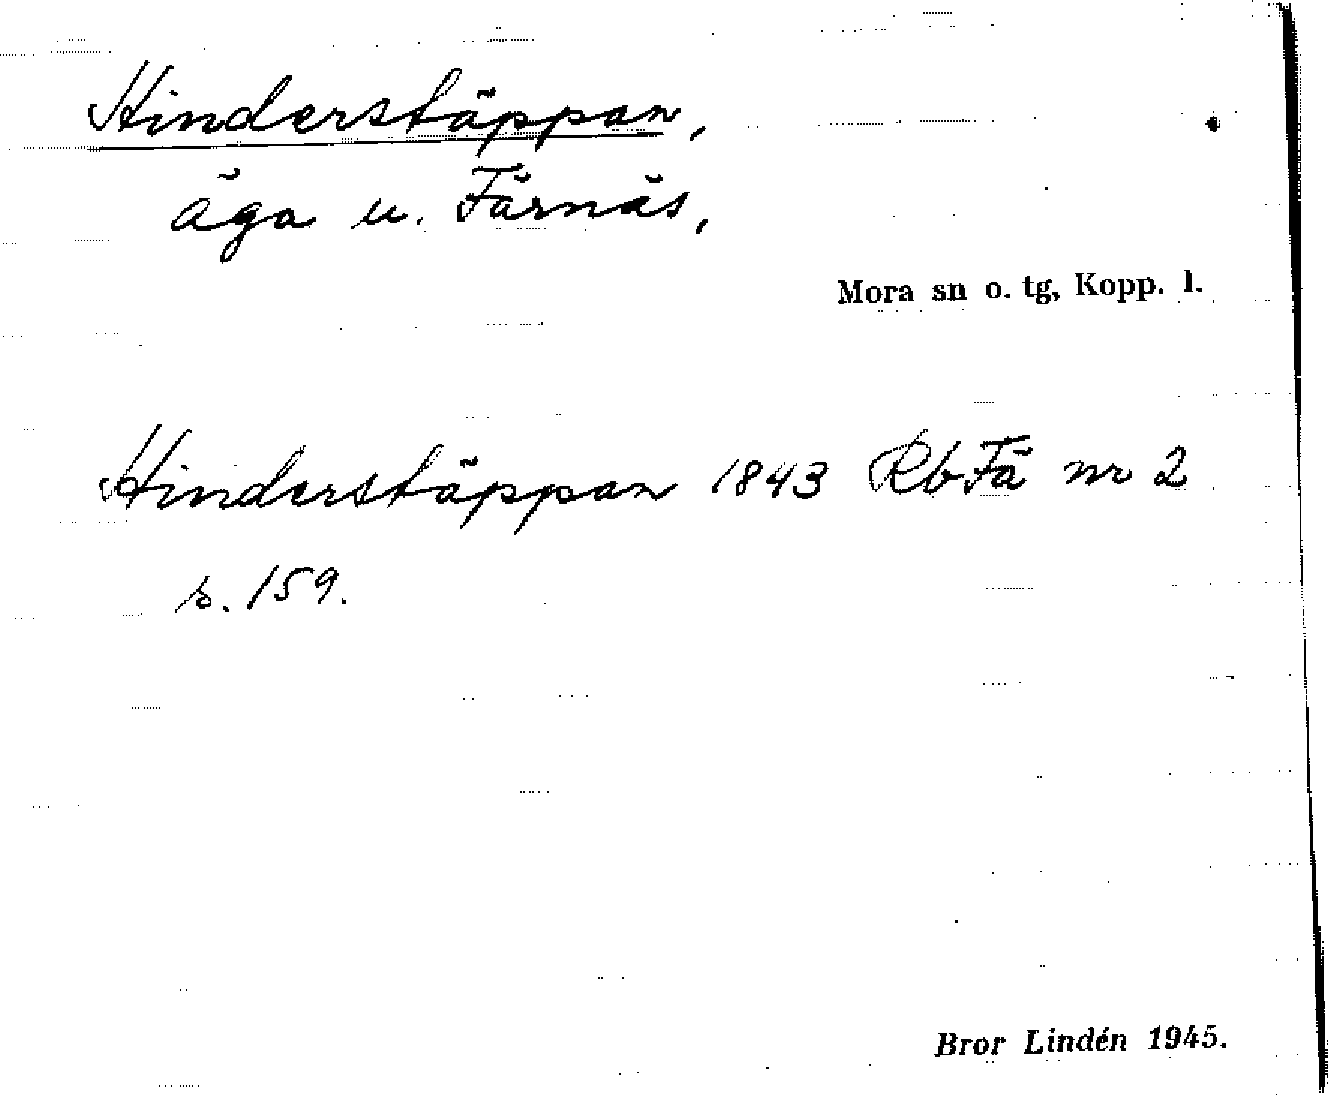 Hinderstäppan,
äga u. Färnäs,
Mora sn o. tg, Kopp. l.
Hinderstäppan 1843 RbFä nr 2
s. 159.
Bror Lindén 1945.